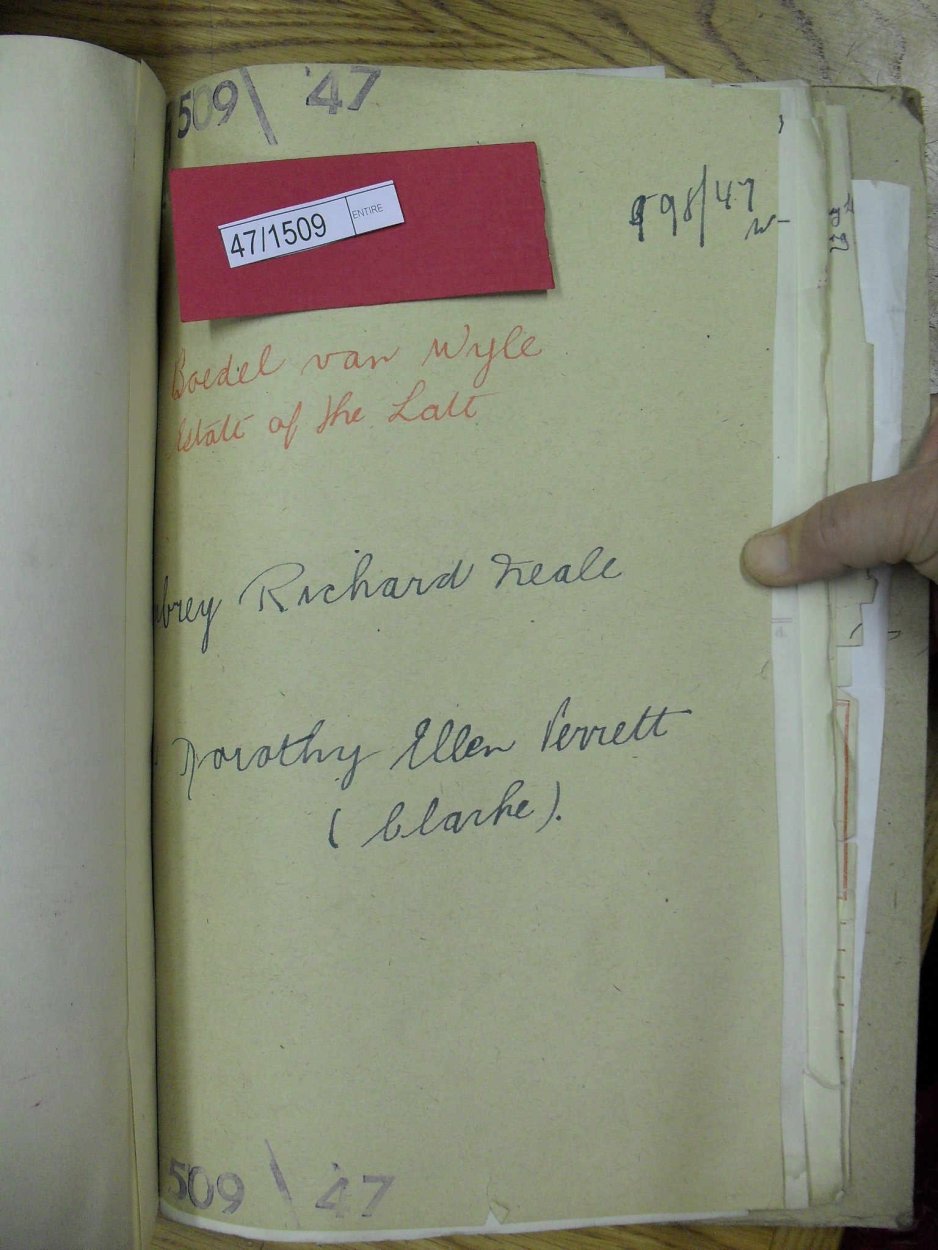 509 \ '47
47/1509 ENTIRE
998/47
Boedel van Wyle
Estate of the Late
brey Richard Neale
Dorothy Ellen Perrett
(Clarke).
509 \ '47